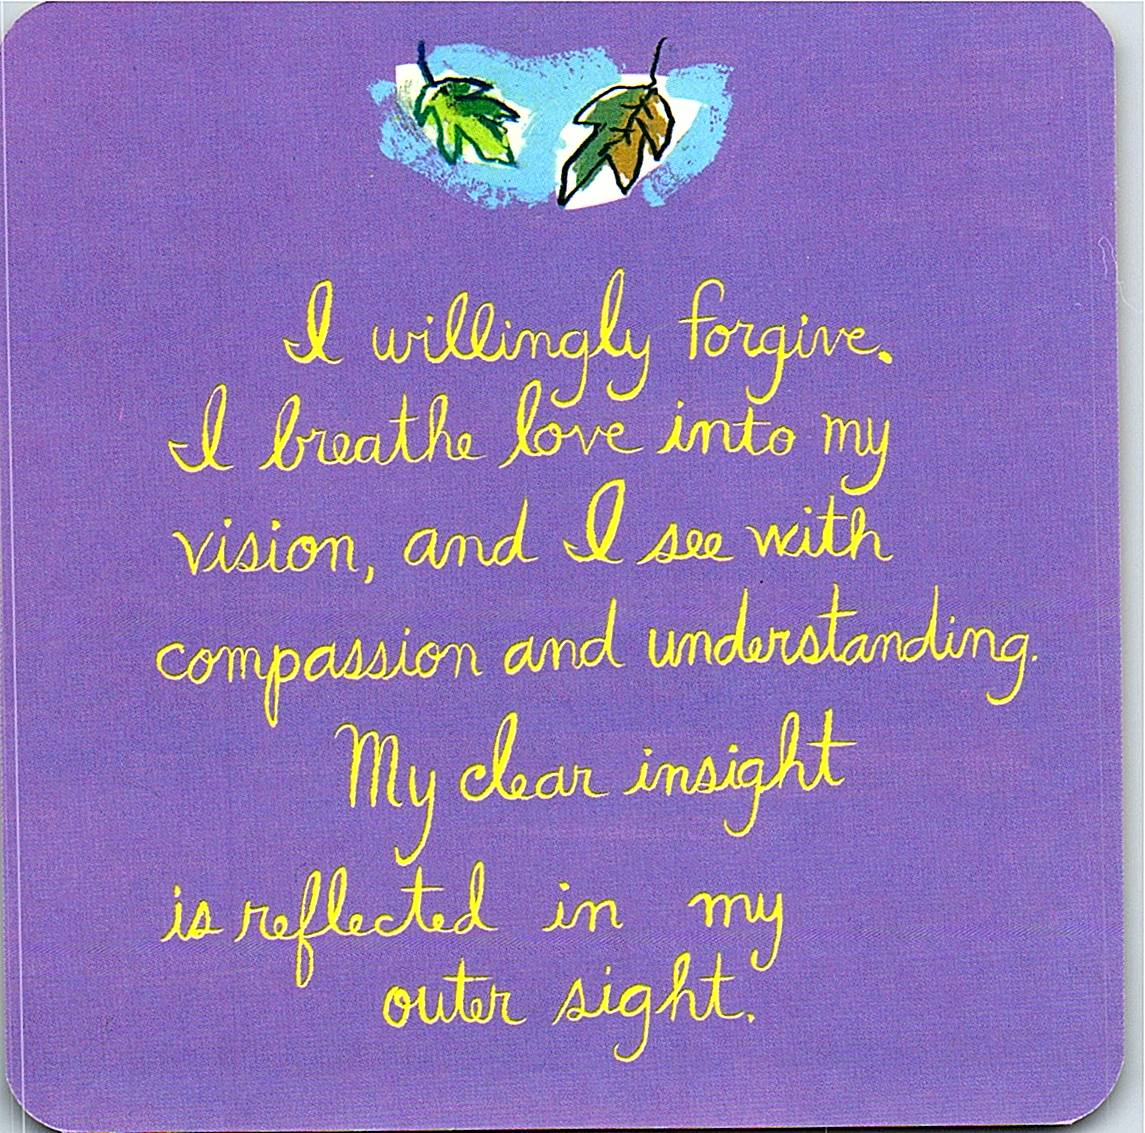 I willingly forgive.
I breathe love into my
vision, and I see with
compassion and understanding.
My clear insight
is reflected in my
outer sight.